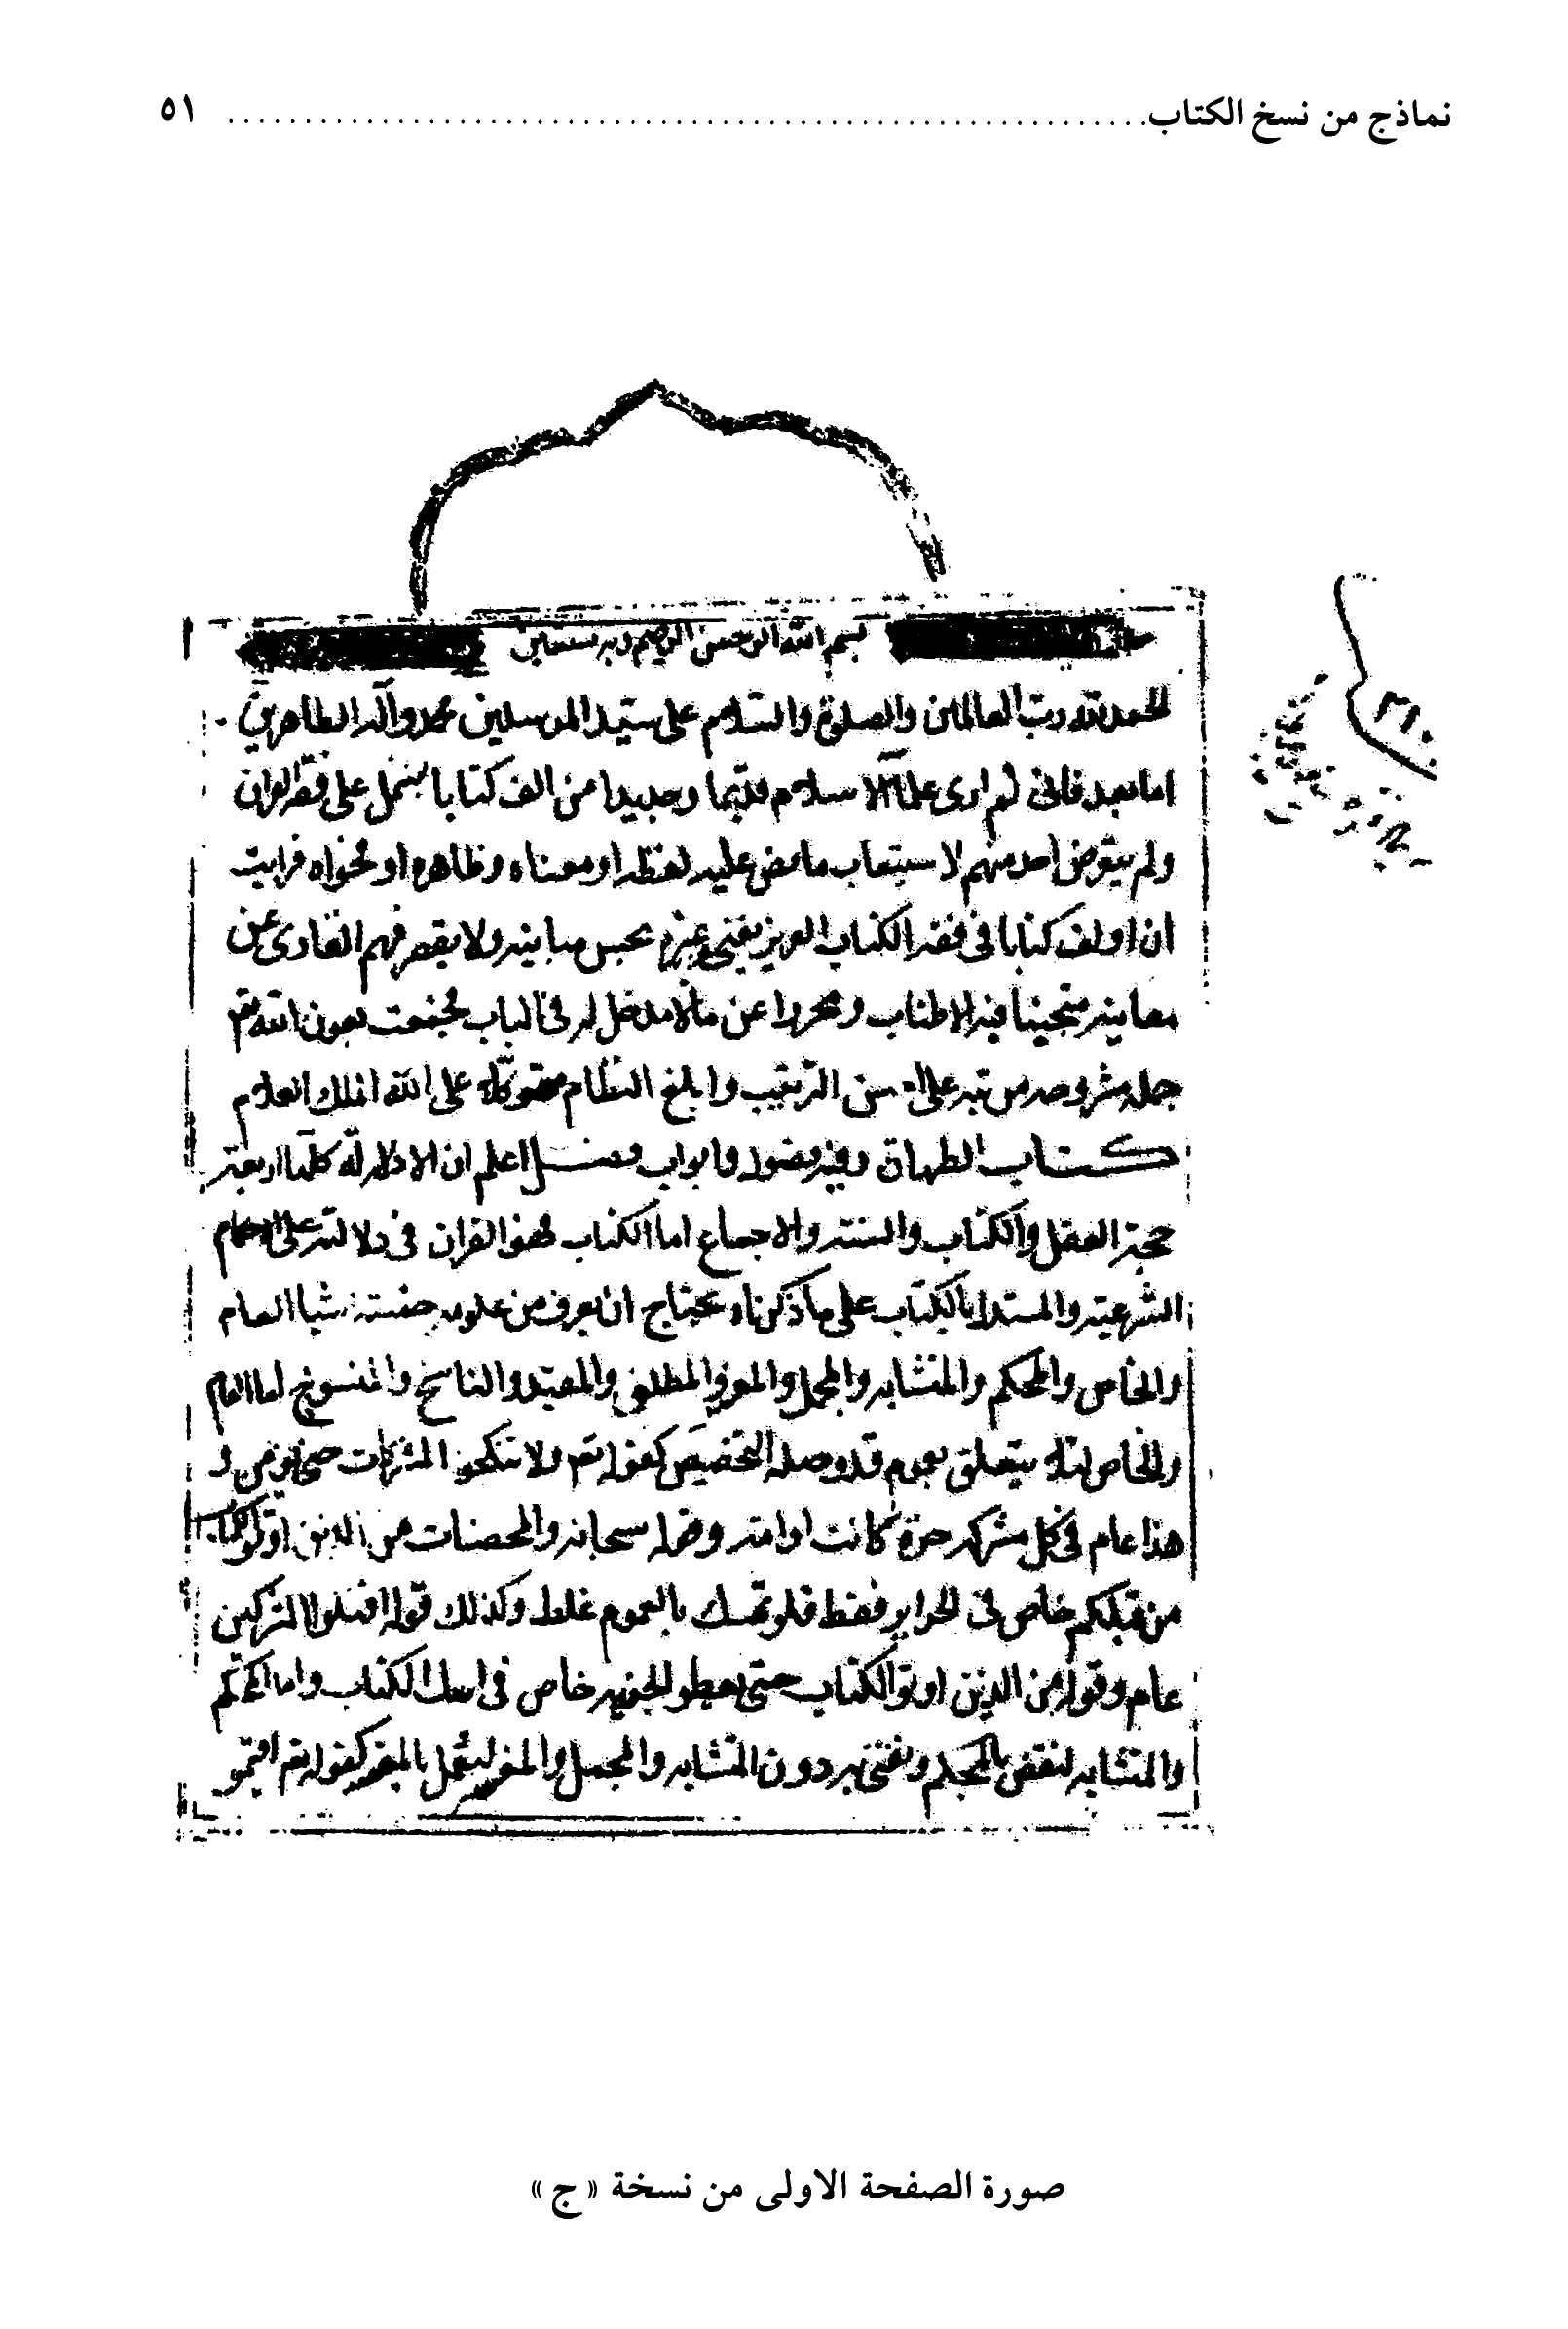 نماذج من نسخ الكتاب ............................................................ ٥١
بسم الله الرحمن الرحيم وبه نستعين
الحمد لله رب العالمين والصلوة والسلام على سيد المرسلين محمد وآله الطاهرين
اما بعد فانى لم ارى علماء الاسلام قديما وحديدا من الف كتابا يشتمل على فقه القران
ولم يتعرض احد منهم لاستيعاب ما نص عليه لفظه او معناه وظاهره او فحواه فرايت
ان اولف كتابا فى فقه الكتاب العزيز يغنى عن غيره بحسن مبانيه ولا يقصر فهم القارى عن
معانيه متجنبا فيه الاطناب و عن ما لا مدخل له فى الباب فجمعت بعون الله تع
جمله مشروحه مرتبه على احسن الترتيب وابلغ النظام متوكلا على الله الملك العلام
كتاب الطهارة وفيه فصول وابواب فصل اعلم ان الادلة كلها اربعة
حجة العقل والكتاب والسنة والاجماع اما الكتاب فهو القران فى دلالته على الاحكام
الشرعية والمستدل بالكتاب على ما ذكرناه يحتاج ان يعرف من علومه خمسة اشيا العام
والخاص والمحكم والمتشابه والمجمل والمفسر والمطلق والمقيد والناسخ والمنسوخ اما العام
والخاص لئلا يتعلق بعموم قد دخله التخصيص كقوله تع ولا تنكحوا المشركات حتى يؤمن و
هذا عام فى كل مشركه حرة كانت او امة وقوله سبحانه والمحصنات من الذين اوتوا الكتاب
من قبلكم خاص فى الحراير فقط فلو تمسك بالعموم غلط وكذلك قوله اقتلوا المشركين
عام وقوله من الذين اوتوا الكتاب حتى يعطوا الجزيه خاص فى اهل الكتاب واما المحكم
والمتشابه ليقضى بالمحكم ويفتى به دون المتشابه والمجمل والمفسر ليعمل بالمفسر كقوله تع اقيموا
صورة الصفحة الاولى من نسخة « ج »